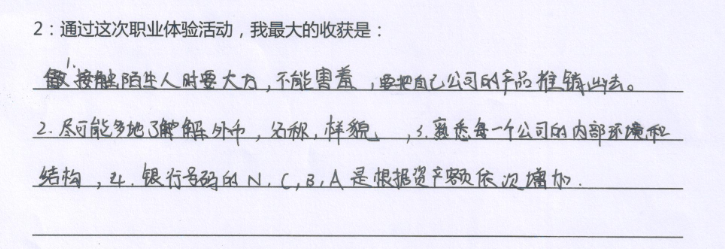 2：通过这次职业体验活动，我最大的收获是：
1.接触陌生人时要大方，不能害羞，要把自己公司的产品推销出去。
2.尽可能多地了解外币，名称，样貌，3.熟悉每一个公司的内部环境和
结构，4.银行号码的N.C,B,A是根据资产额依次增加.